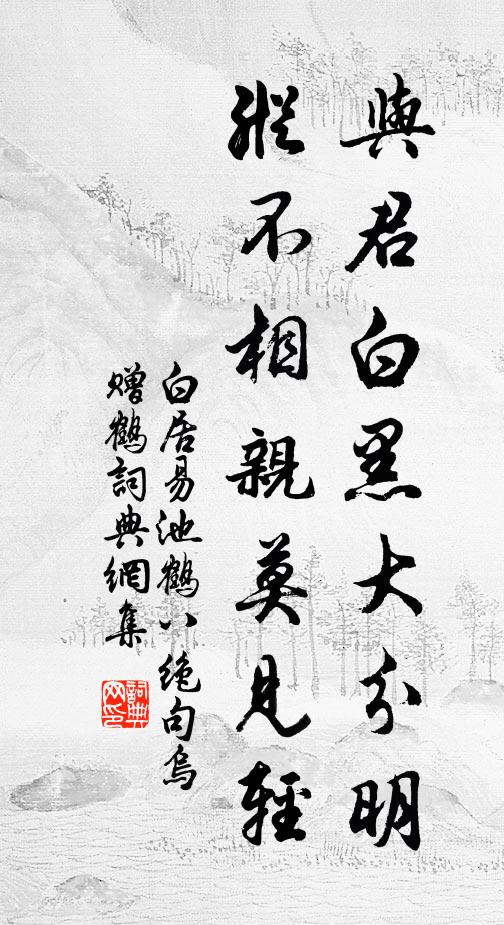 與君白黑大分明
縱不相親莫見輕
白居易池鶴八絶句烏
贈鶴詞典網集
詞典
网印